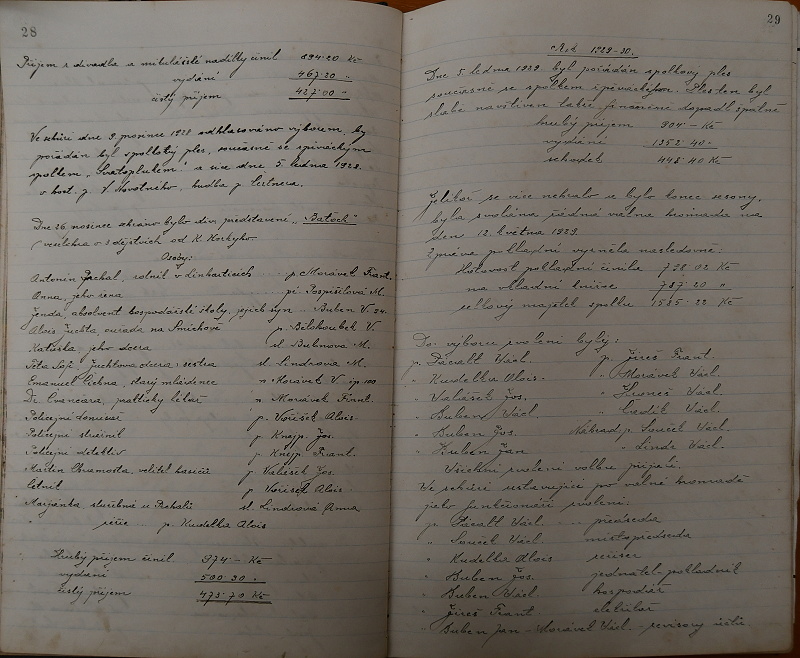 28
Příjem z divadla a mikulášské nadílky činil 894·20 Kč
vydání 467·20 "
čistý příjem 427·00 "
Ve schůzi dne 9. prosince 1928 odhlasováno výborem, by
pořádán byl spolkový ples, současně se zpěváckým
spolkem „Svatoplukem" a sice dne 5. ledna 1929.
v host. p. V. Novotného, hudba p.
Dne 26. prosince sehráno bylo div. představení „Batoch"
veselohra o 3 dějstvích od K.
Osoby:
Antonín Pachal, rolník v p. Morávek Frant.
Anna, jeho žena pí Pospíšilová M.
Jenda, absolvent hospodářské školy, jejich syn Buben V. 24.
Alois Juchta, na Smíchově p. Bělohoubek V.
Katuška, jeho dcera sl. Bubnova M.
Teta Juchtova sestra sl. Lindrova M.
Emanuel starý mládenec Morávek V. čp. 100
Dr. Evančara, praktický lékař Morávek Frant.
Policejní p. Voříšek Alois
Policejní strážník p. Knejp Jos.
Policejní detektiv p. Knejp Frant.
velitel hasičů p. Valášek Jos.
p. Voříšek Alois
Marjánka služebná u Pachalů sl. Lindrová Anna
režie p. Kudelka Alois
Hrubý příjem činil 974·– Kč
vydání 500·30 "
čistý příjem 473·70 Kč
29
Rok 1929-30.
Dne 5. ledna 1929 byl pořádán spolkový ples
současně se spolkem zpěváckým. Ples ten byl
slabě navštíven takže finančně dopadl špatně
hrubý příjem 904·– Kč
vydání 1352·40·–
schodek 448·40 Kč
Jelikož se více nehrálo a bylo konec sezony,
byla svolána řádná valná hromada na
den 12. května 1929.
Zpráva pokladní vyzněla následovně:
Hotovost pokladní činila 798·02 Kč
na vkladní knížce 787·20 "
celkový majetek spolku 1585·22 Kč
Do výboru zvoleni byli:
p. Facalt Václ. p. Jireš Frant.
" Kudelka Alois. " Morávek Václ.
" Valášek Jos. " Hroneš Václ.
" Buben Václ. " Václ.
" Buben Jos. Náhrad. p. Souček Václ.
" Buben Jan " Lindr Václ.
Všichni zvolení volbu přijali.
Ve schůzi ustavující po valné hromadě
jako funkcionáři zvoleni:
p. Facalt Václ. předseda
" Souček Václ. místopředseda
" Kudelka Alois režiser
" Buben Jos. jednatel-pokladník
" Buben Václ. hospodář
" Jireš Frant
" Buben Jan - Morávek Václ. - revisory účtů